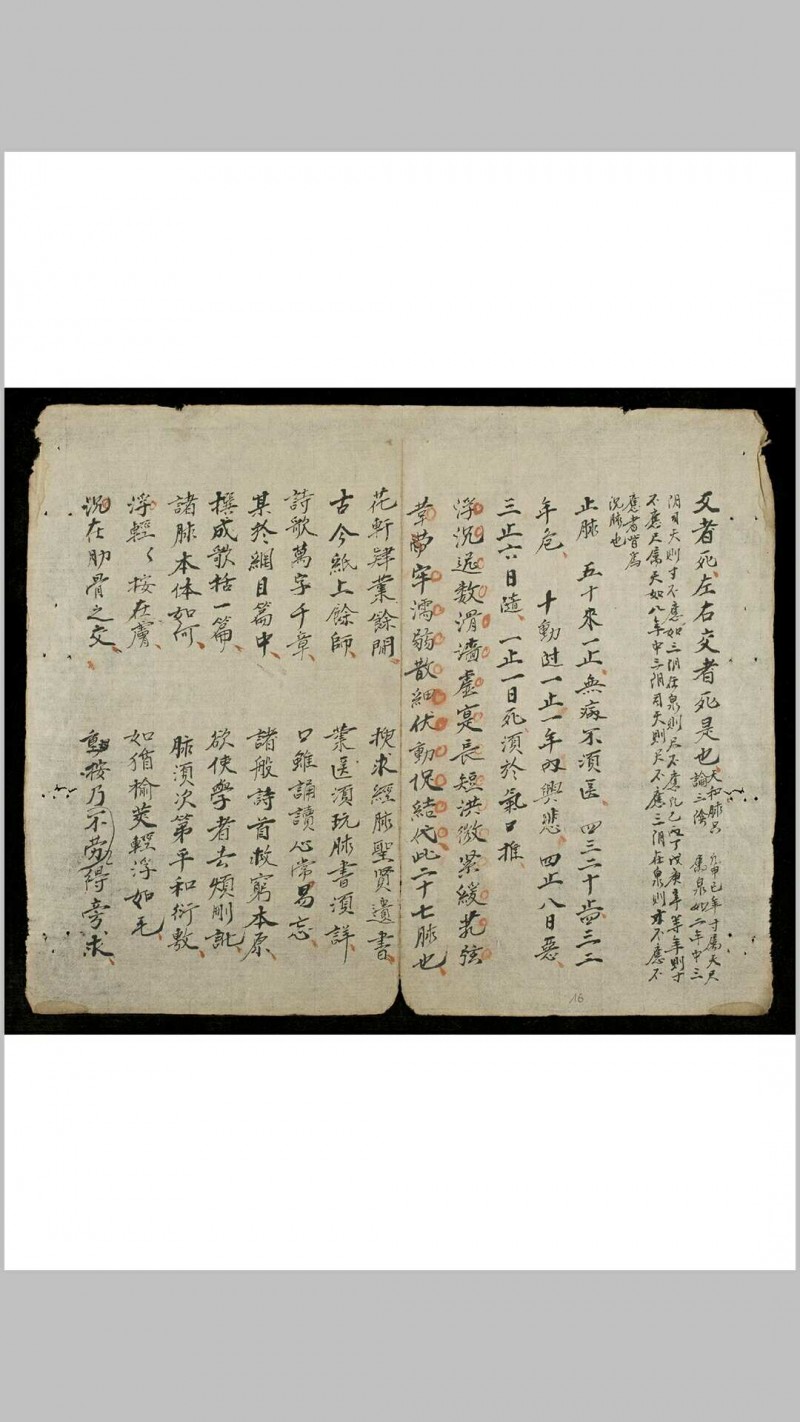 叉者死、左右交者死是也、
天和脉只論三陰
九甲己年寸属天尺属泉如二年中三
阴司天則寸不應如三阴在泉則尺不應凢乙丙丁戊庚辛等年則寸
不應尺属天如八年中三阴司天則尺不應三阴在泉則寸不應不
應者皆為
沉脉也
止脉 五十來一止、無病不湏医、四三二十止、三二
年危、 十動过一止一年内興悲、四止八日惡、
三止六日隨、一止一日死、湏於氣口推、
浮沉迟数滑濇虛寔長短洪微紧緩芤弦
革牢濡弱散細伏動促結代此二十七脉也、
花軒肄業餘閒、 搜求經脉聖贤遺書、
古今紙上餘師、 業医湏玩脉書湏詳、
詩歌萬字千章、 口雖誦讀心常易忘、
某於綱目篇中、 諸般詩首救窮本原、
撰成歌括一篇、 欲使學者去煩刪訛、
諸脉本体如何、 脉湏次第平和衍敷、
浮輕々按在膚、 如循榆荚輕浮如毛、
沉在肋骨之交、 按乃不劳得旁求、
16